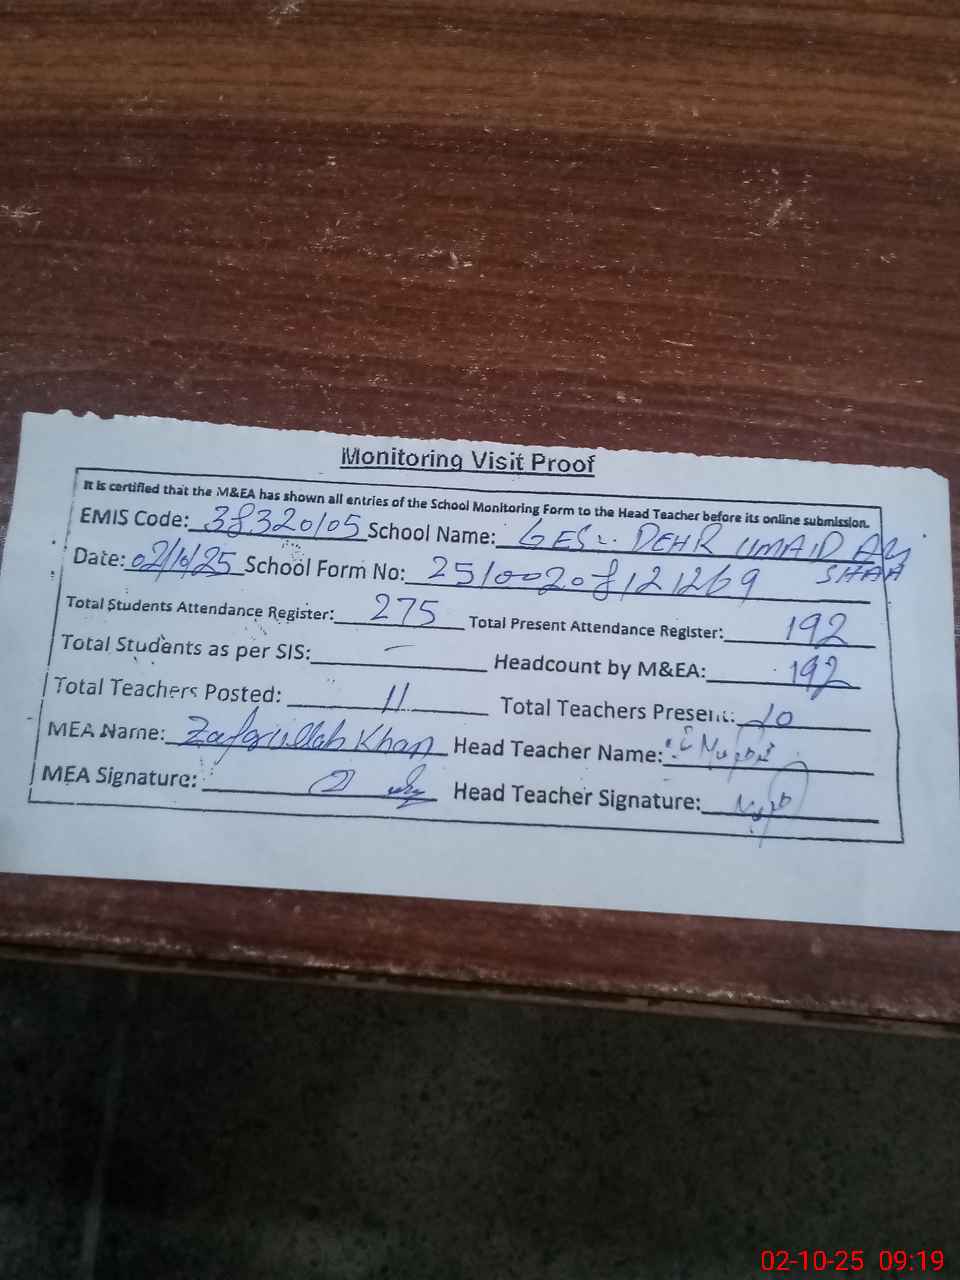 Monitoring Visit Proof
It is certified that the M&EA has shown all entries of the School Monitoring Form to the Head Teacher before its online submission.
EMIS Code: 38320105 School Name: GES DEHR UMAID ALI SHAH
Date: 02/10/25 School Form No: 25100208121269
Total Students Attendance Register: 275 Total Present Attendance Register: 192
Total Students as per SIS: — Headcount by M&EA: 192
Total Teachers Posted: 11 Total Teachers Present: 10
MEA Name: Zafarullah Khan Head Teacher Name:
MEA Signature: Head Teacher Signature:
02-10-25 09:19